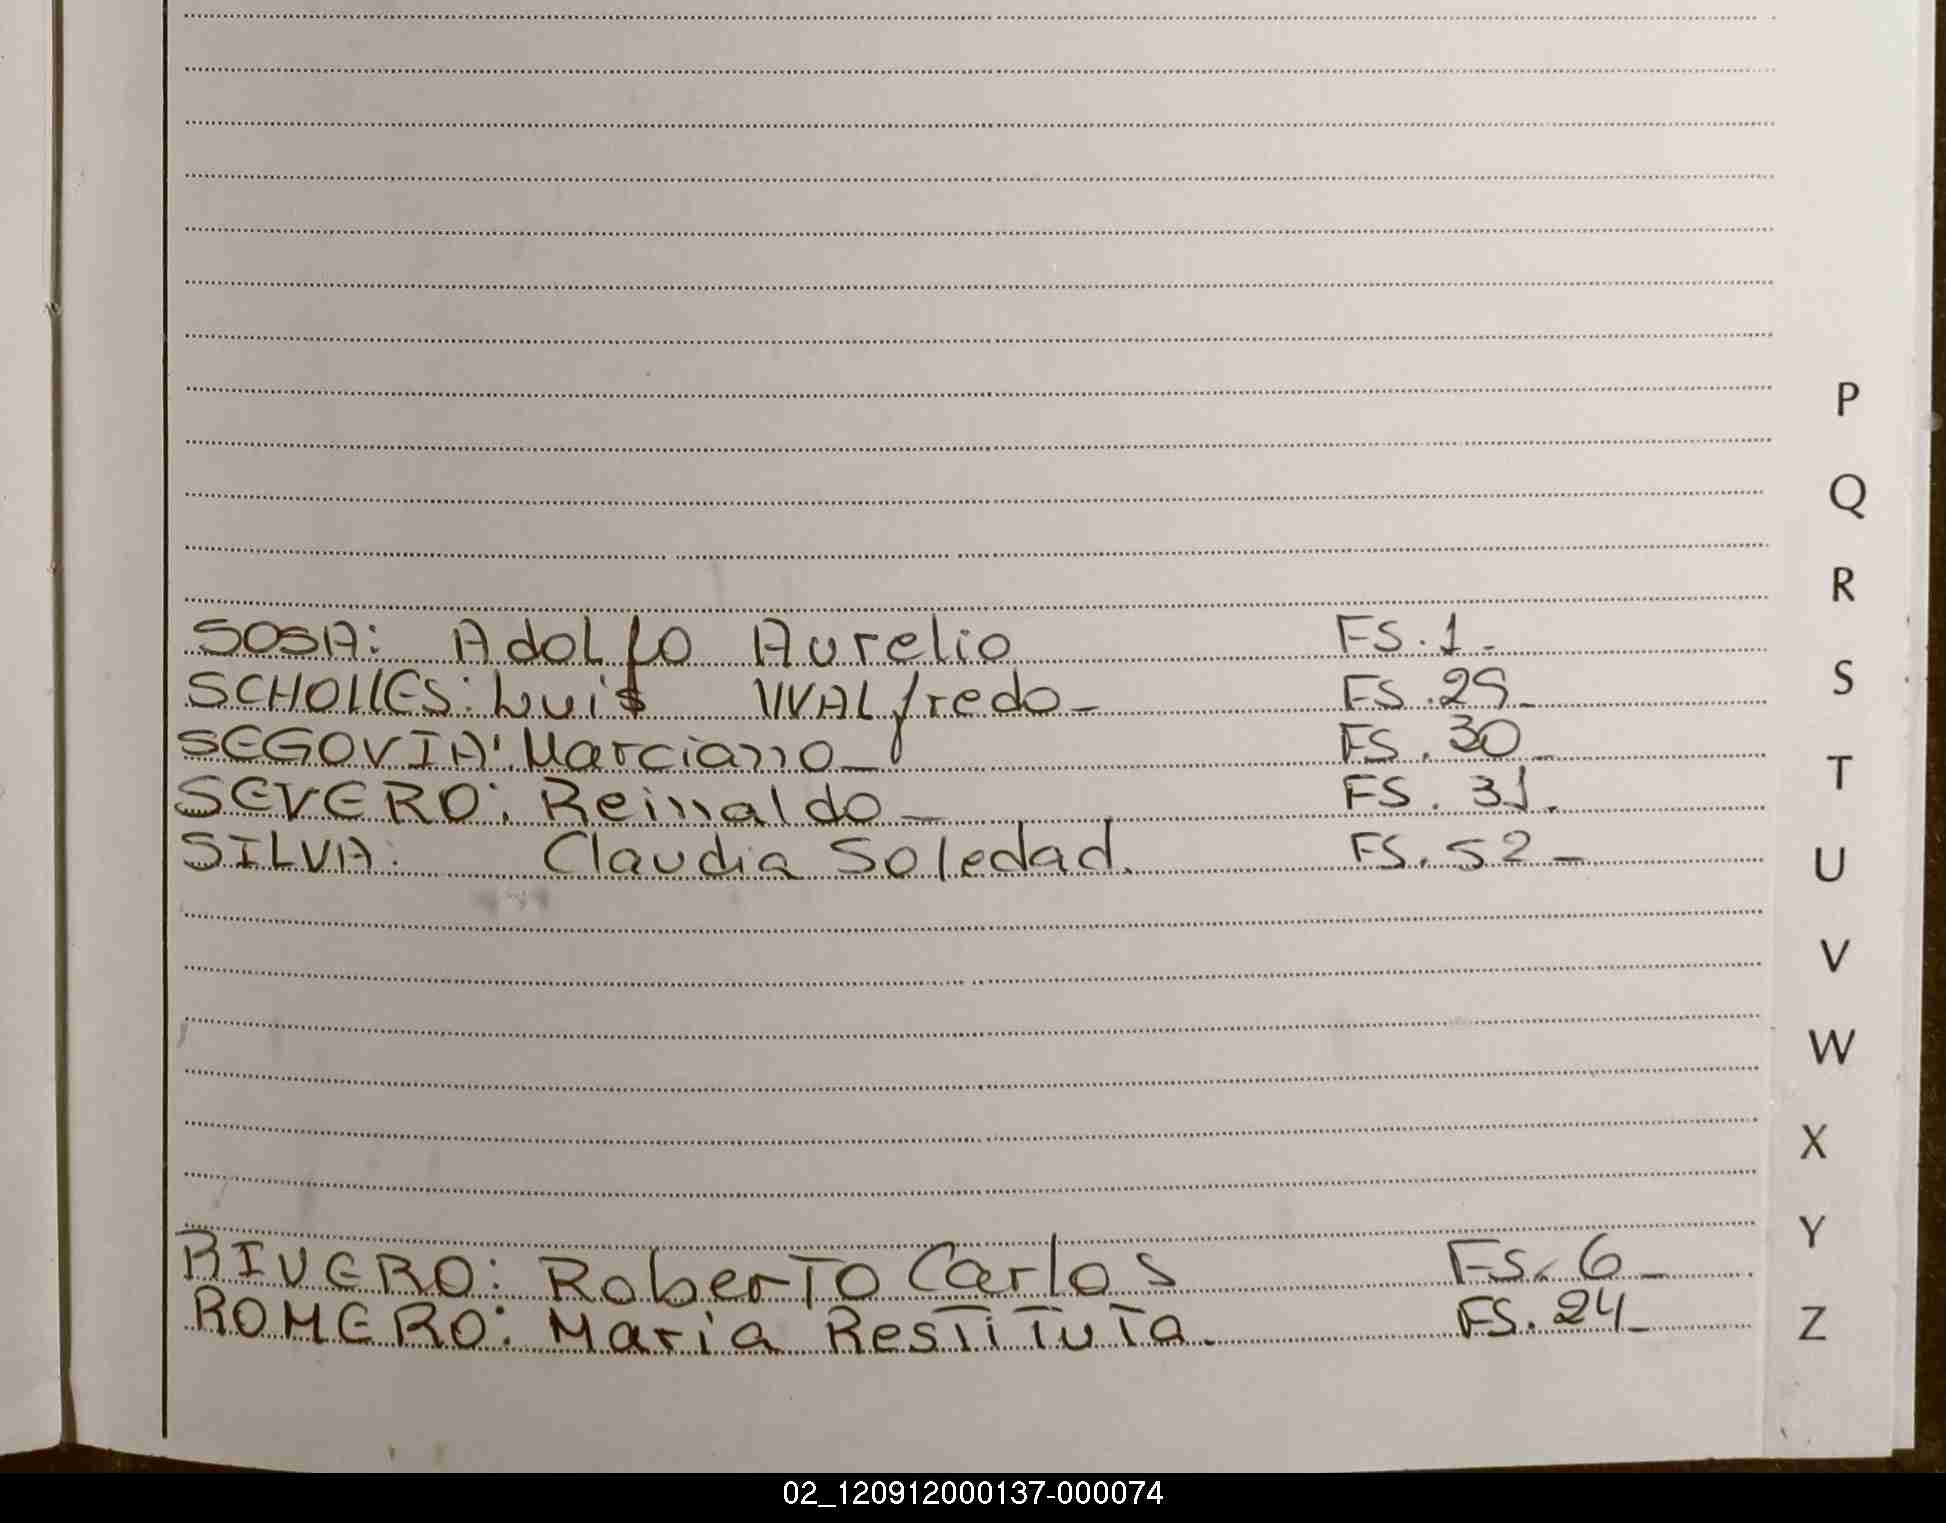 P
Q
R
SOSA: Adolfo Aurelio FS.1-
SCHOLLES: Luis WALfredo- FS.29-
S
SEGOVIA: Marciano- FS.30-
T
SEVERO: Reinaldo- FS.31.
SILVA: Claudia Soledad. FS.52-
U
V
W
X
Y
RIVERO: Roberto Carlos FS.6-
ROMERO: Maria Restituta. FS.24-
Z
02_120912000137-000074